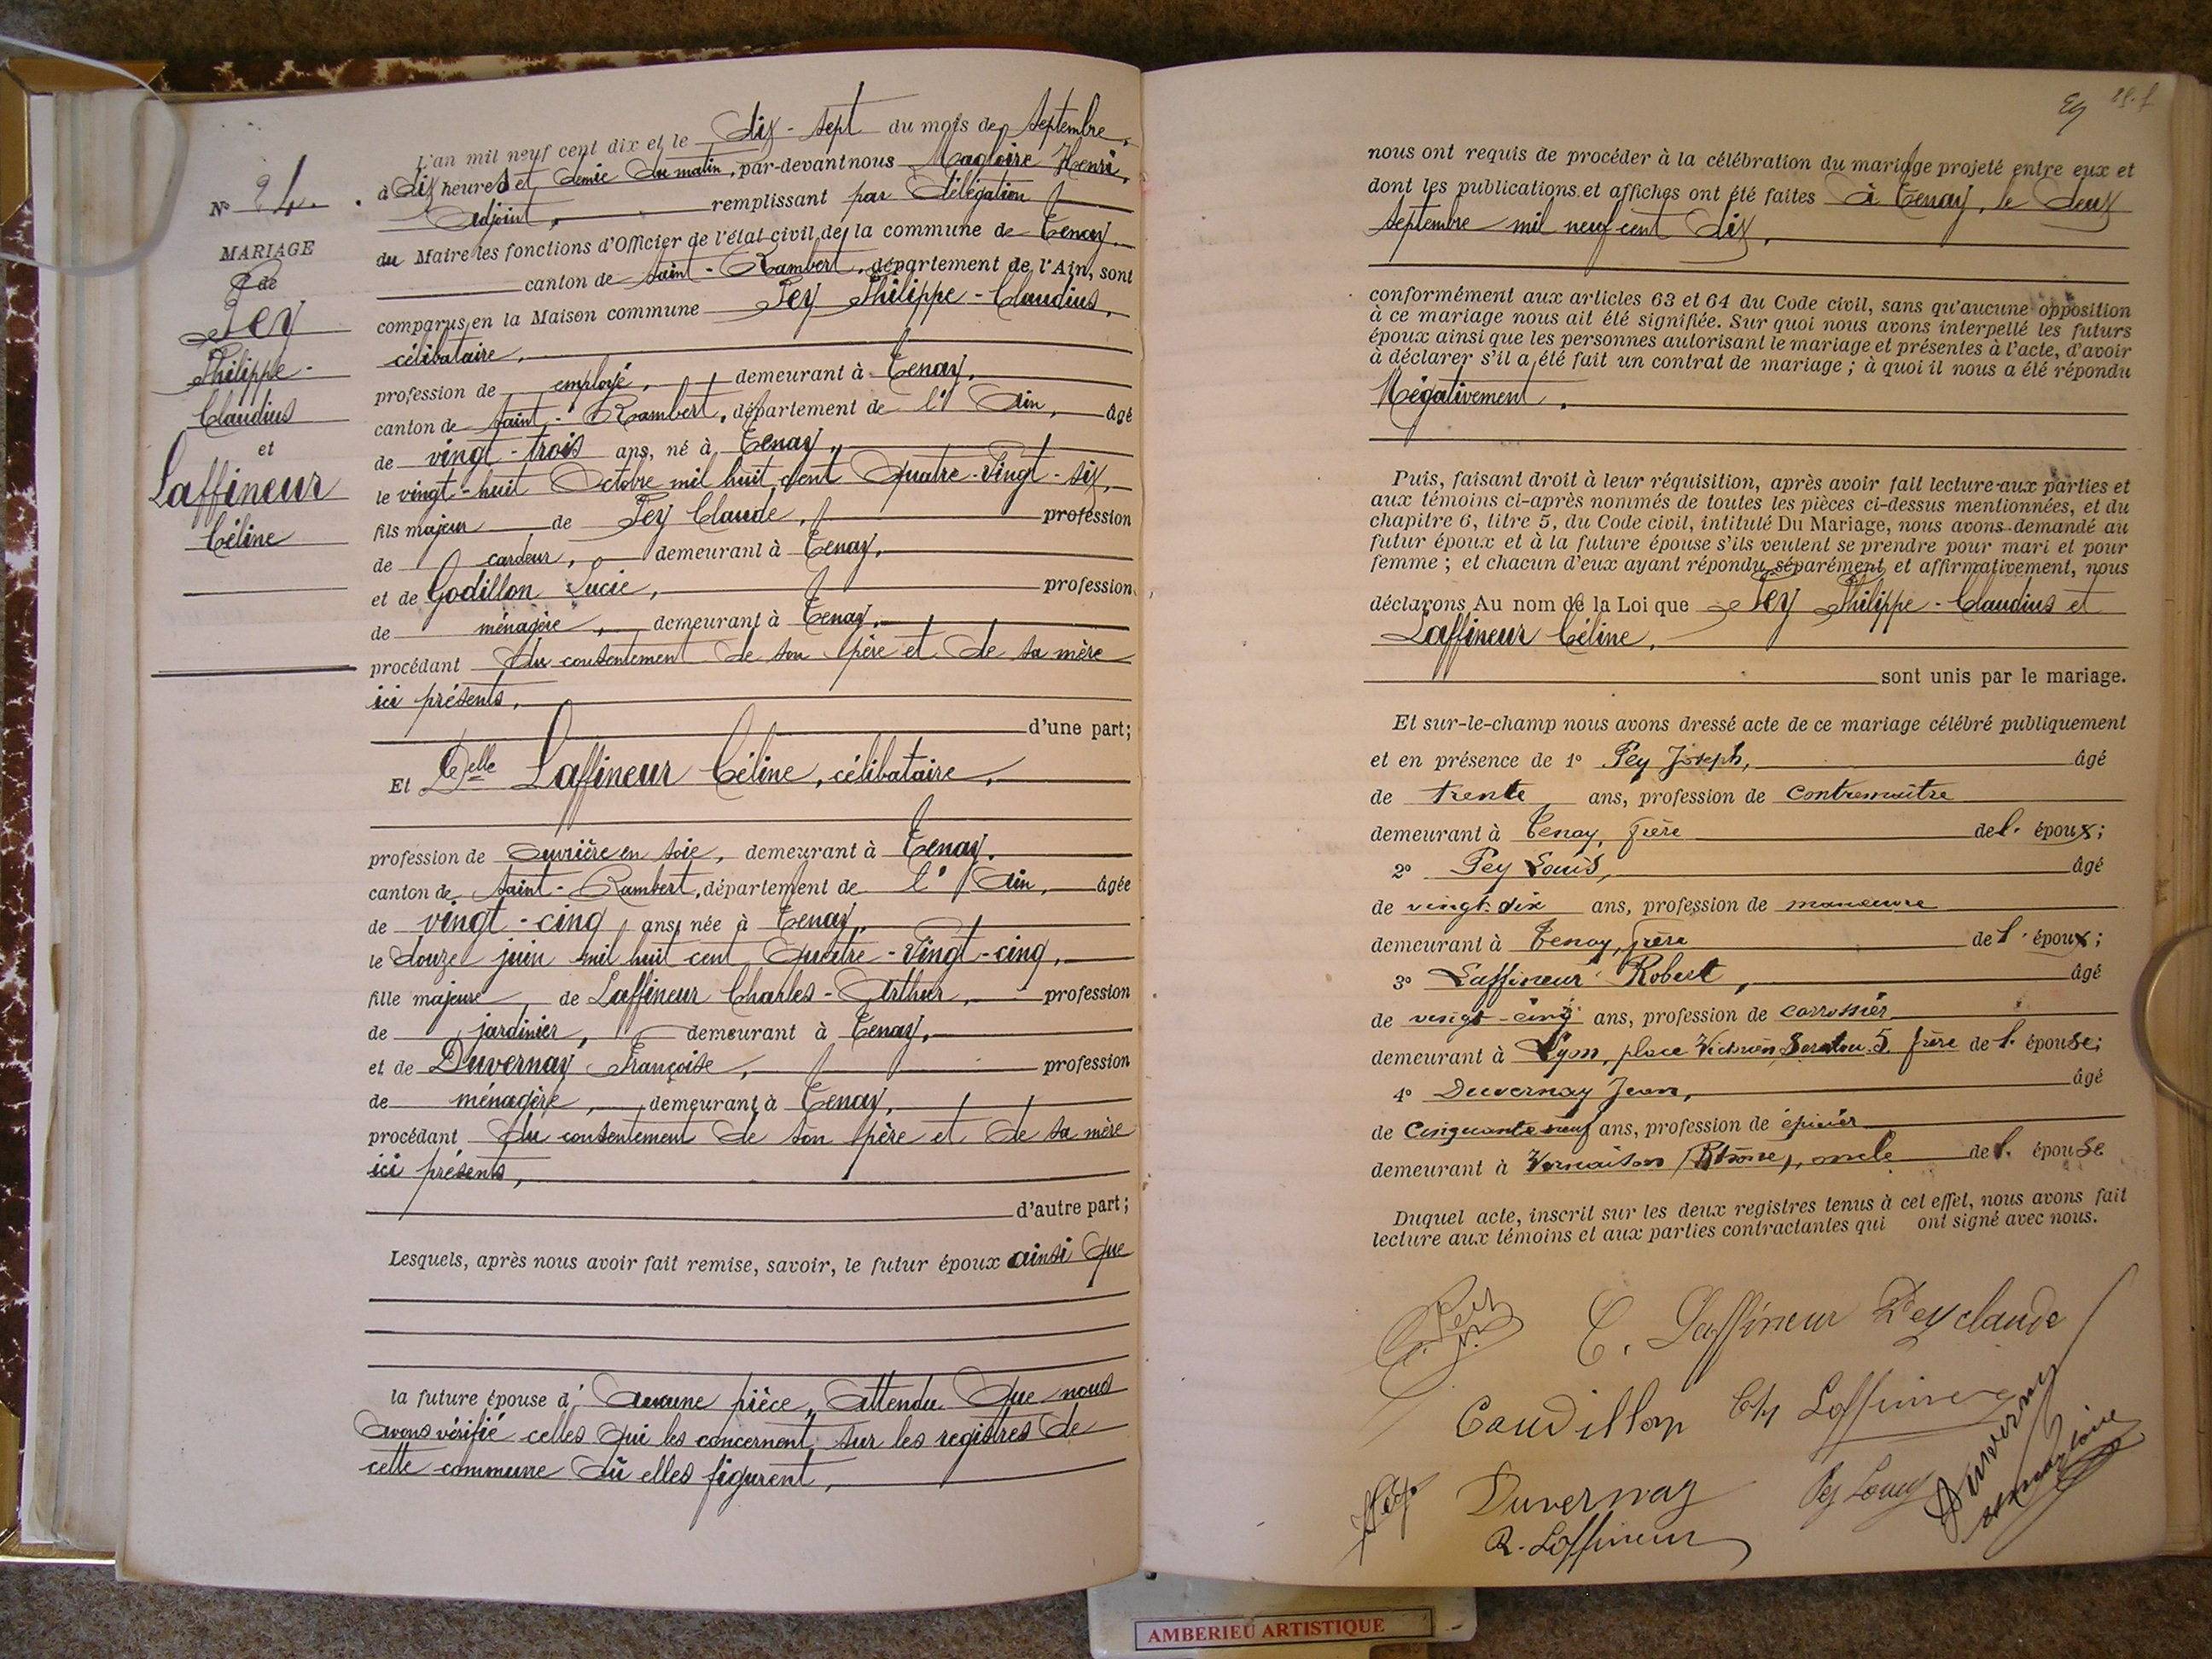 L'an mil neuf cent dix et le dix-sept du mois de Septembre,
à dix heures et demie du matin, par-devant nous Magloire Henri,
adjoint, remplissant par délégation
du Maire les fonctions d'Officier de l'état civil de la commune de Tenay,
canton de Saint-Rambert, département de l'Ain, sont
comparus en la Maison commune Pey Philippe-Claudius,
célibataire,
profession de employé, demeurant à Tenay,
canton de Saint-Rambert, département de l'Ain, âgé
de vingt-trois ans, né à Tenay,
le vingt-huit Octobre mil huit cent quatre-vingt-six,
fils majeur de Pey Claude, profession
de cardeur, demeurant à Tenay,
et de Godillon Lucie, profession
de ménagère, demeurant à Tenay,
procédant du consentement de son père et de sa mère
ici présents,
d'une part;
Et Delle Laffineur Céline, célibataire,
profession de ouvrière en soie, demeurant à Tenay,
canton de Saint-Rambert, département de l'Ain, âgée
de vingt-cinq ans, née à Tenay,
le douze juin mil huit cent quatre-vingt-cinq,
fille majeure de Laffineur Charles-Arthur, profession
de jardinier, demeurant à Tenay,
et de Duvernay Françoise, profession
de ménagère, demeurant à Tenay,
procédant du consentement de son père et de sa mère
ici présents,
d'autre part;
Lesquels, après nous avoir fait remise, savoir, le futur époux ainsi que
la future épouse d'aucune pièce, attendu que nous
avons vérifié celles qui les concernent, sur les registres de
cette commune où elles figurent,
N° 24.
MARIAGE
de
Pey
Philippe-
Claudius
et
Laffineur
Céline
nous ont requis de procéder à la célébration du mariage projeté entre eux et
dont les publications et affiches ont été faites à Tenay, le deux
septembre mil neuf cent dix,
conformément aux articles 63 et 64 du Code civil, sans qu'aucune opposition
à ce mariage nous ait été signifiée. Sur quoi nous avons interpellé les futurs
époux ainsi que les personnes autorisant le mariage et présentes à l'acte, d'avoir
à déclarer s'il a été fait un contrat de mariage ; à quoi il nous a été répondu
Négativement.
Puis, faisant droit à leur réquisition, après avoir fait lecture aux parties et
aux témoins ci-après nommés de toutes les pièces ci-dessus mentionnées, et du
chapitre 6, titre 5, du Code civil, intitulé Du Mariage, nous avons demandé au
futur époux et à la future épouse s'ils veulent se prendre pour mari et pour
femme ; et chacun d'eux ayant répondu séparément et affirmativement, nous
déclarons Au nom de la Loi que Pey Philippe-Claudius et
Laffineur Céline,
sont unis par le mariage.
Et sur-le-champ nous avons dressé acte de ce mariage célébré publiquement
et en présence de 1° Pey Joseph, âgé
de trente ans, profession de contremaître
demeurant à Tenay, frère de l' époux;
2° Pey Louis, âgé
de vingt-dix ans, profession de manœuvre
demeurant à Tenay, frère de l' époux;
3° Laffineur Robert, âgé
de vingt-cinq ans, profession de carrossier
demeurant à Lyon, place 5, frère de l' épouse;
4° Duvernay Jean, âgé
de cinquante neuf ans, profession de épicier
demeurant à Vernaison (Rhône), oncle de l' épouse
Duquel acte, inscrit sur les deux registres tenus à cet effet, nous avons fait
lecture aux témoins et aux parties contractantes qui ont signé avec nous.
C. Laffineur Pey claude
Goudillon Ch Laffineur
Duvernay Pey Louis Duvernay
R. Laffineur Magloire
AMBERIEU ARTISTIQUE